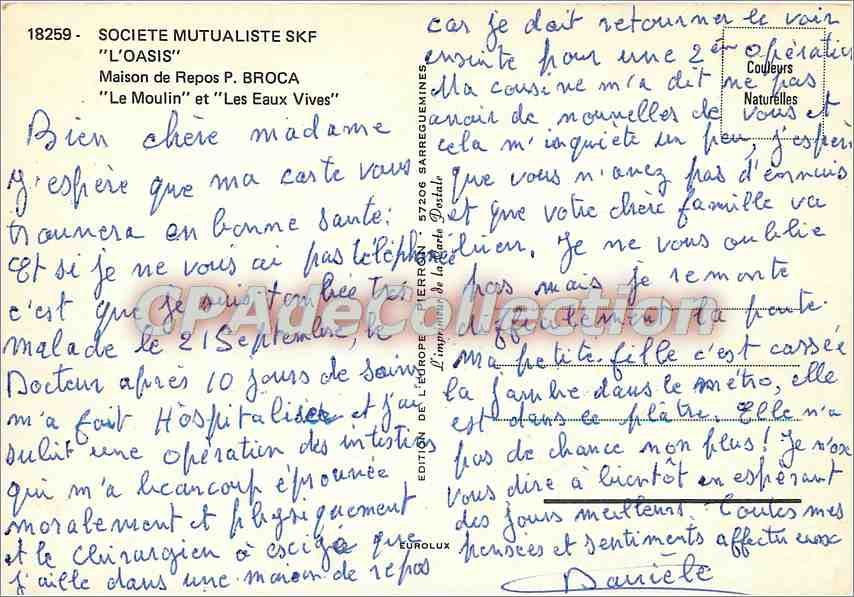 18259 - SOCIETE MUTUALISTE SKF
"L'OASIS"
Maison de Repos P. BROCA
"Le Moulin" et "Les Eaux Vives"
Bien chère madame
J'espère que ma carte vous
trouvera en bonne santé.
Et si je ne vous ai pas téléphonée
c'est que je suis tombée très
malade le 21 Septembre, le
Docteur après 10 jours de soins
m'a fait Hôspitaliser et j'ai
subit une opération des intestins
qui m'a beaucoup éprouvée
moralement et physiquement
et le chirurgien à exigé que
j'aille dans une maison de repos
car je doit retourner le voir
ensuite pour une 2ème opération
Ma cousine m'a dit ne pas
avoir de nouvelles de vous et
cela m'inquiète un peu, j'espère
que vous n'avez pas d'ennuis
et que votre chère famille va
bien. Je ne vous oublie
pas mais je remonte
difficilement la pente.
Ma petite-fille c'est cassée
la jambe dans le métro, elle
est dans le plâtre. Elle n'a
pas de chance non plus! Je n'ose
vous dire à bientôt en espérant
des jours meilleurs. Toutes mes
pensées et sentiments affectueux
Danièle
Couleurs
Naturelles
EDITION DE L'EUROPE - PIERRON - 57206 SARREGUEMINES
L'imprimeur de la Carte Postale
EUROLUX
CPADeCollection